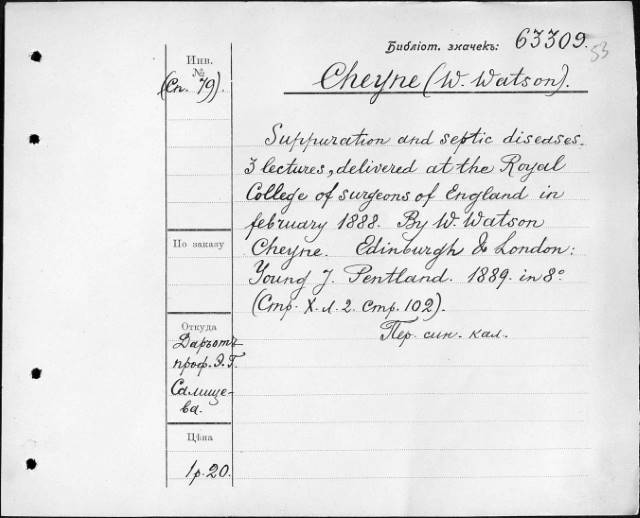 Библіот. значекъ: 63309.
53
Инв.
№
(Сп. 79).
Cheyne (W. Watson).
Suppuration and septic diseases.
3 lectures, delivered at the Royal
College of surgeons of England in
february 1888. By W. Watson
Cheyne. Edinburgh & London:
Young J. Pentland. 1889. in 8°
(Стр. X. л. 2. Стр. 102).
Пер. син. кал.
По заказу
Откуда
Даръ отъ
проф. Э. Г.
Салище-
ва.
Цѣна
1 р. 20.